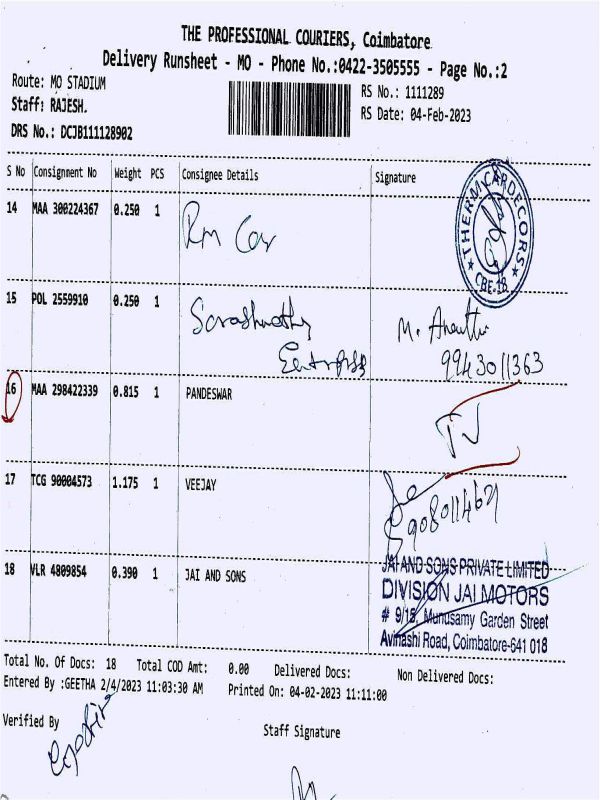 THE PROFESSIONAL COURIERS, Coimbatore
Delivery Runsheet - MO - Phone No.:0422-3505555 - Page No.:2
Route: MO STADIUM
RS No.: 1111289
Staff: RAJESH.
RS Date: 04-Feb-2023
DRS No.: DCJB111128902
S No Consignment No Weight PCS Consignee Details Signature
14 MAA 300224367 0.250 1 Rm Car
THERM CAR DECORS
CBE-18
15 POL 2559910 0.250 1 Sarashwathy M. Ananthi
9943011363
16 MAA 298422339 0.815 1 PANDESWAR
17 TCG 90004573 1.175 1 VEEJAY
18 VLR 4809854 0.390 1 JAI AND SONS
JAI AND SONS PRIVATE LIMITED
DIVISION JAI MOTORS
# 9/15, Munusamy Garden Street
Avinashi Road, Coimbatore-641 018
Total No. Of Docs: 18 Total COD Amt: 0.00 Delivered Docs: Non Delivered Docs:
Entered By :GEETHA 2/4/2023 11:03:30 AM Printed On: 04-02-2023 11:11:00
Verified By
Staff Signature